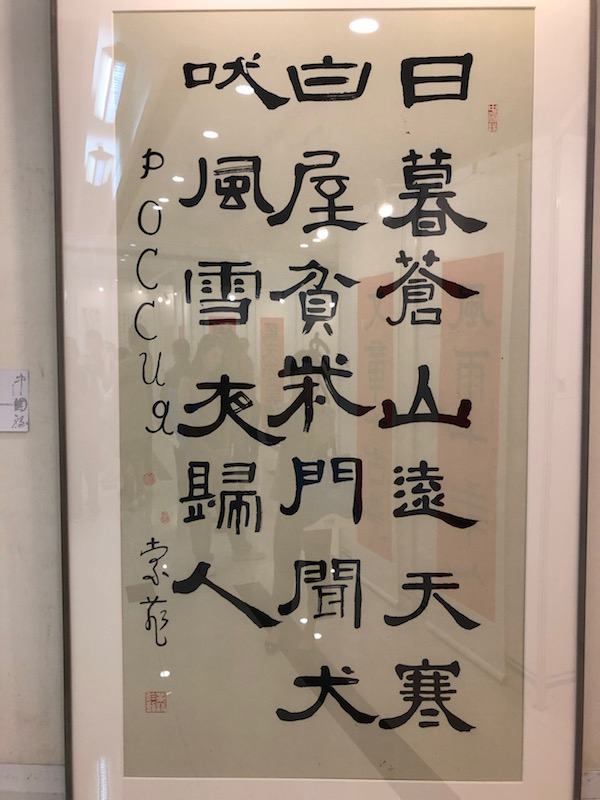 日暮蒼山遠天寒
白屋貧柴門聞犬
吠風雪夜歸人
РОССИЯ 索菲